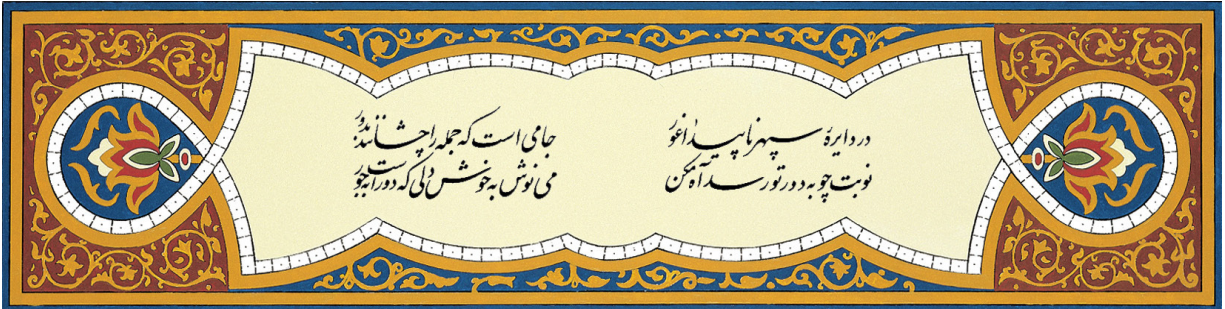 در دایرهٔ سپهر ناپیدا غور جامی است که جمله را چشانند بدور
نوبت چو به دور تو رسد آه مکن می نوش به خوش دلی که دور است به جور